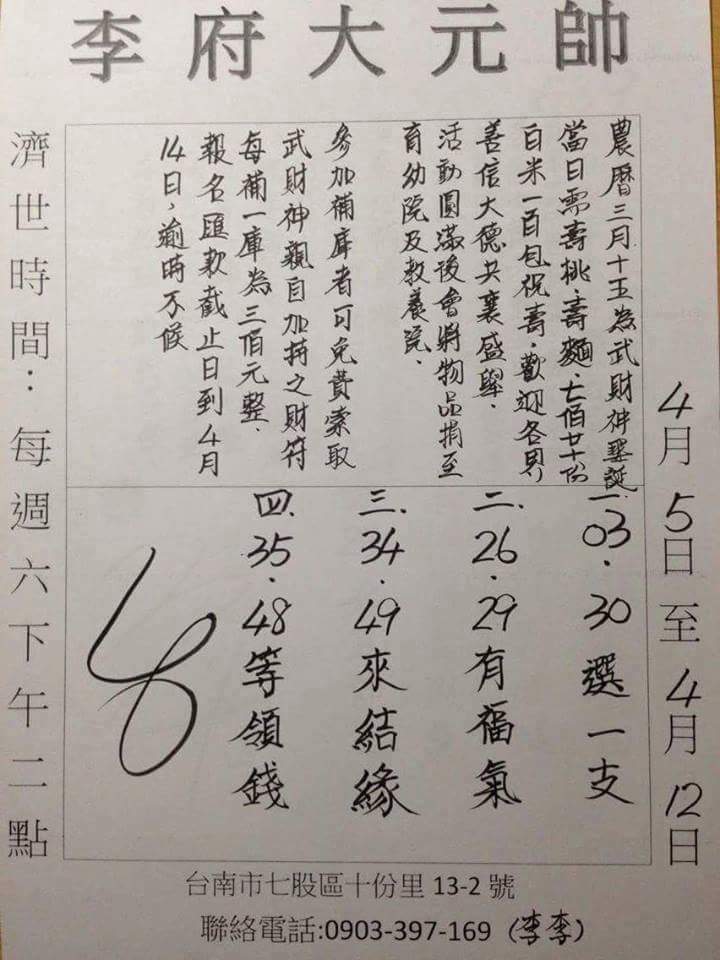 李府大元帥
4月5日至4月12日
農曆三月十五為武財神聖誕
當日需壽桃.壽麵.七佰廿十份
白米一百包祝壽.歡迎各界
善信大德共襄盛舉.
活動圓滿後會將物品捐至
育幼院及教養院.
參加補庫者可免費索取
武財神親自加持之財符
每補一庫為三佰元整.
報名匯款截止日到4月
14日,逾時不候
一.03.30選一支
二.26.29有福氣
三.34.49來結緣
四.35.48等領錢
濟世時間:每週六下午二點
台南市七股區十份里13-2號
聯絡電話:0903-397-169(李李)